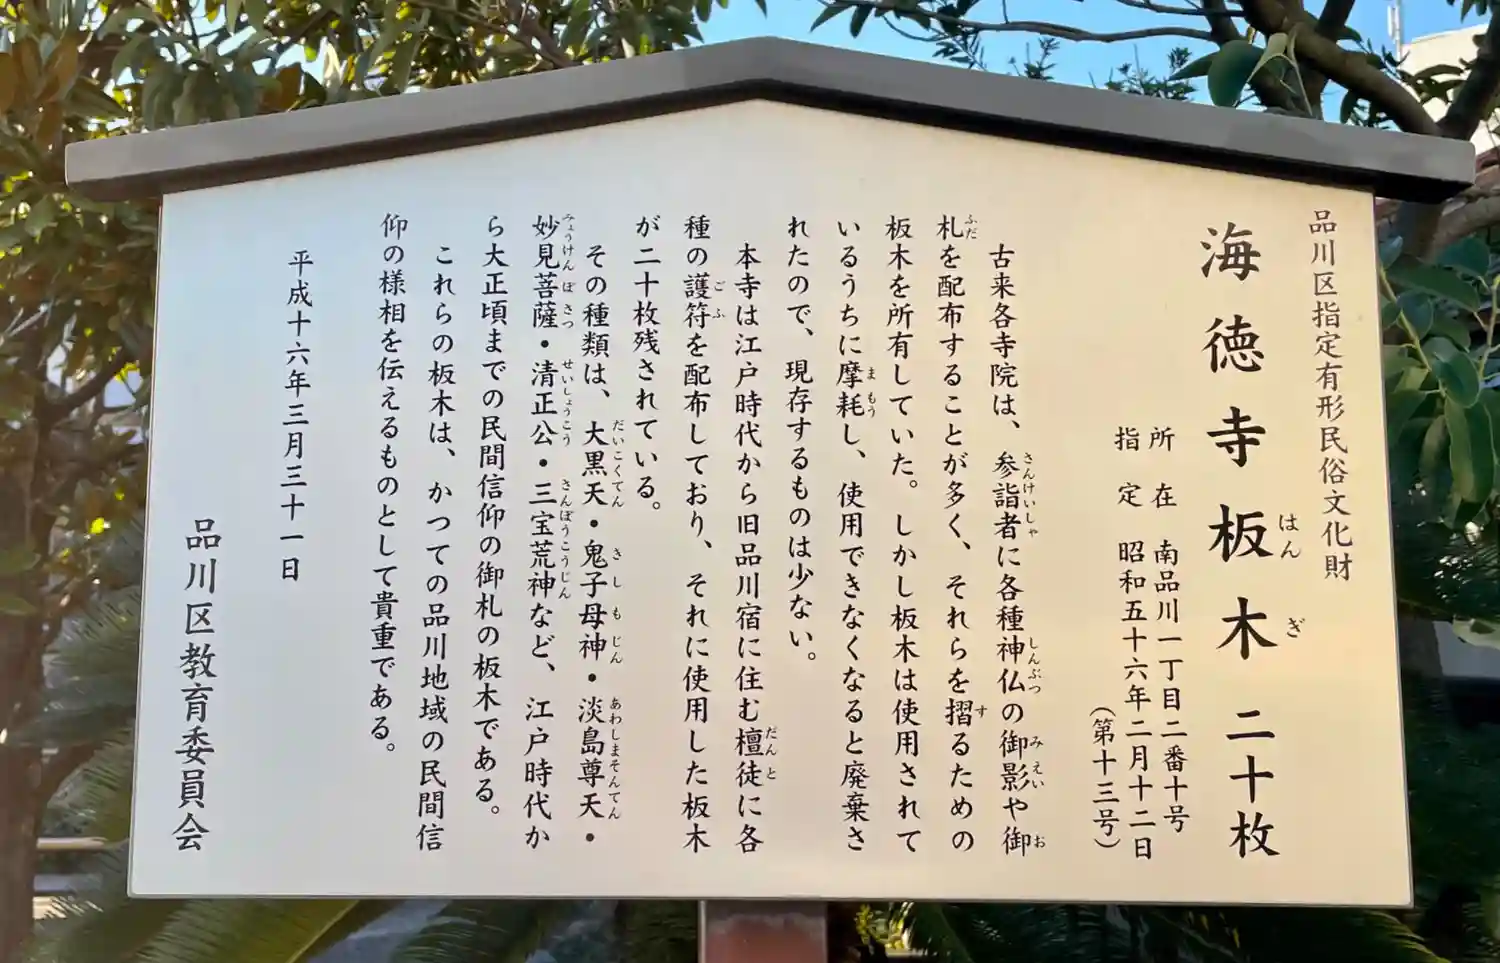 品川区指定有形民俗文化財
海徳寺板木二十枚
はんぎ
所在 南品川一丁目二番十号
指定 昭和五十六年二月十二日
（第十三号）
古来各寺院は、参詣者に各種神仏の御影や御
さんけいしゃ しんぶつ みえい お
札を配布することが多く、それらを摺るための
ふだ す
板木を所有していた。しかし板木は使用されて
いるうちに摩耗し、使用できなくなると廃棄さ
まもう
れたので、現存するものは少ない。
本寺は江戸時代から旧品川宿に住む檀徒に各
だんと
種の護符を配布しており、それに使用した板木
ごふ
が二十枚残されている。
その種類は、大黒天・鬼子母神・淡島尊天・
だいこくてん きしもじん あわしまそんてん
妙見菩薩・清正公・三宝荒神など、江戸時代か
みょうけんぼさつ せいしょうこう さんぼうこうじん
ら大正頃までの民間信仰の御札の板木である。
これらの板木は、かつての品川地域の民間信
仰の様相を伝えるものとして貴重である。
平成十六年三月三十一日
品川区教育委員会